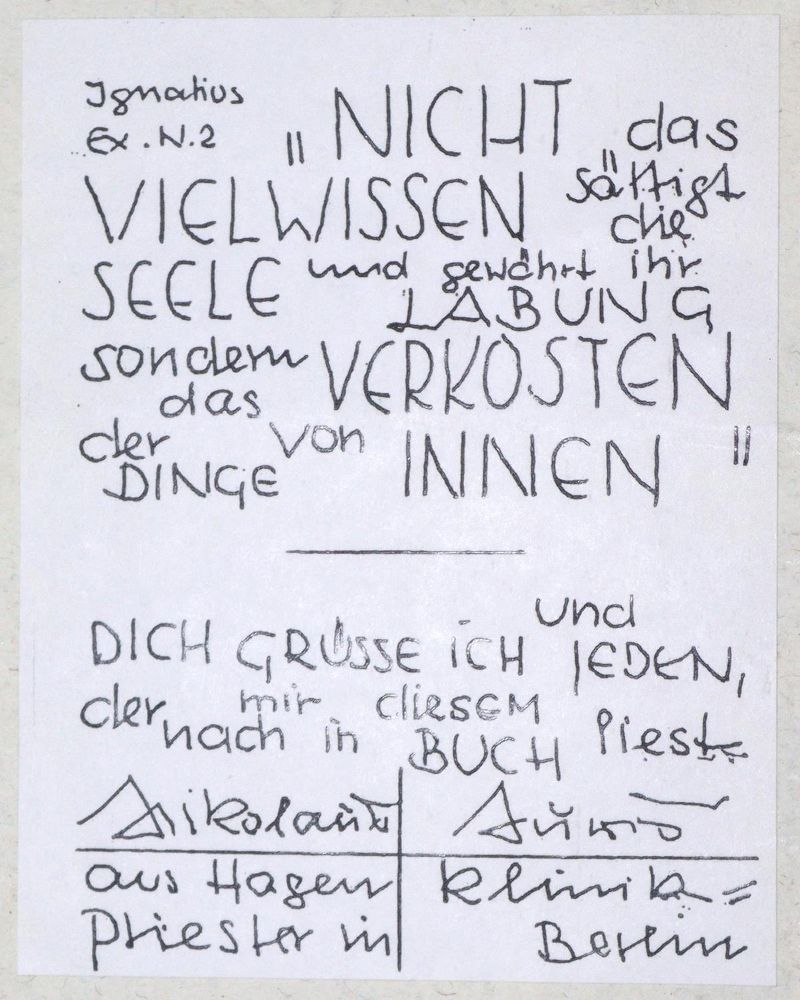 Ignatius
Ex. N.2
„NICHT „das
VIELWISSEN sättigt
die
SEELE und gewährt ihr
LABUNG
sondern VERKOSTEN
das
der von INNEN"
DINGE
und
DICH GRÜSSE ICH JEDEN,
der mir diesem
nach in BUCH liest
Nikolaus
aus Hagen Klinik=
Priester in Berlin